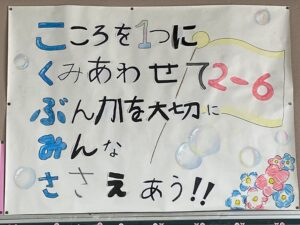 こころを1つに
くみあわせて2-6
ぶん力を大切に
みんな
ささえあう!!